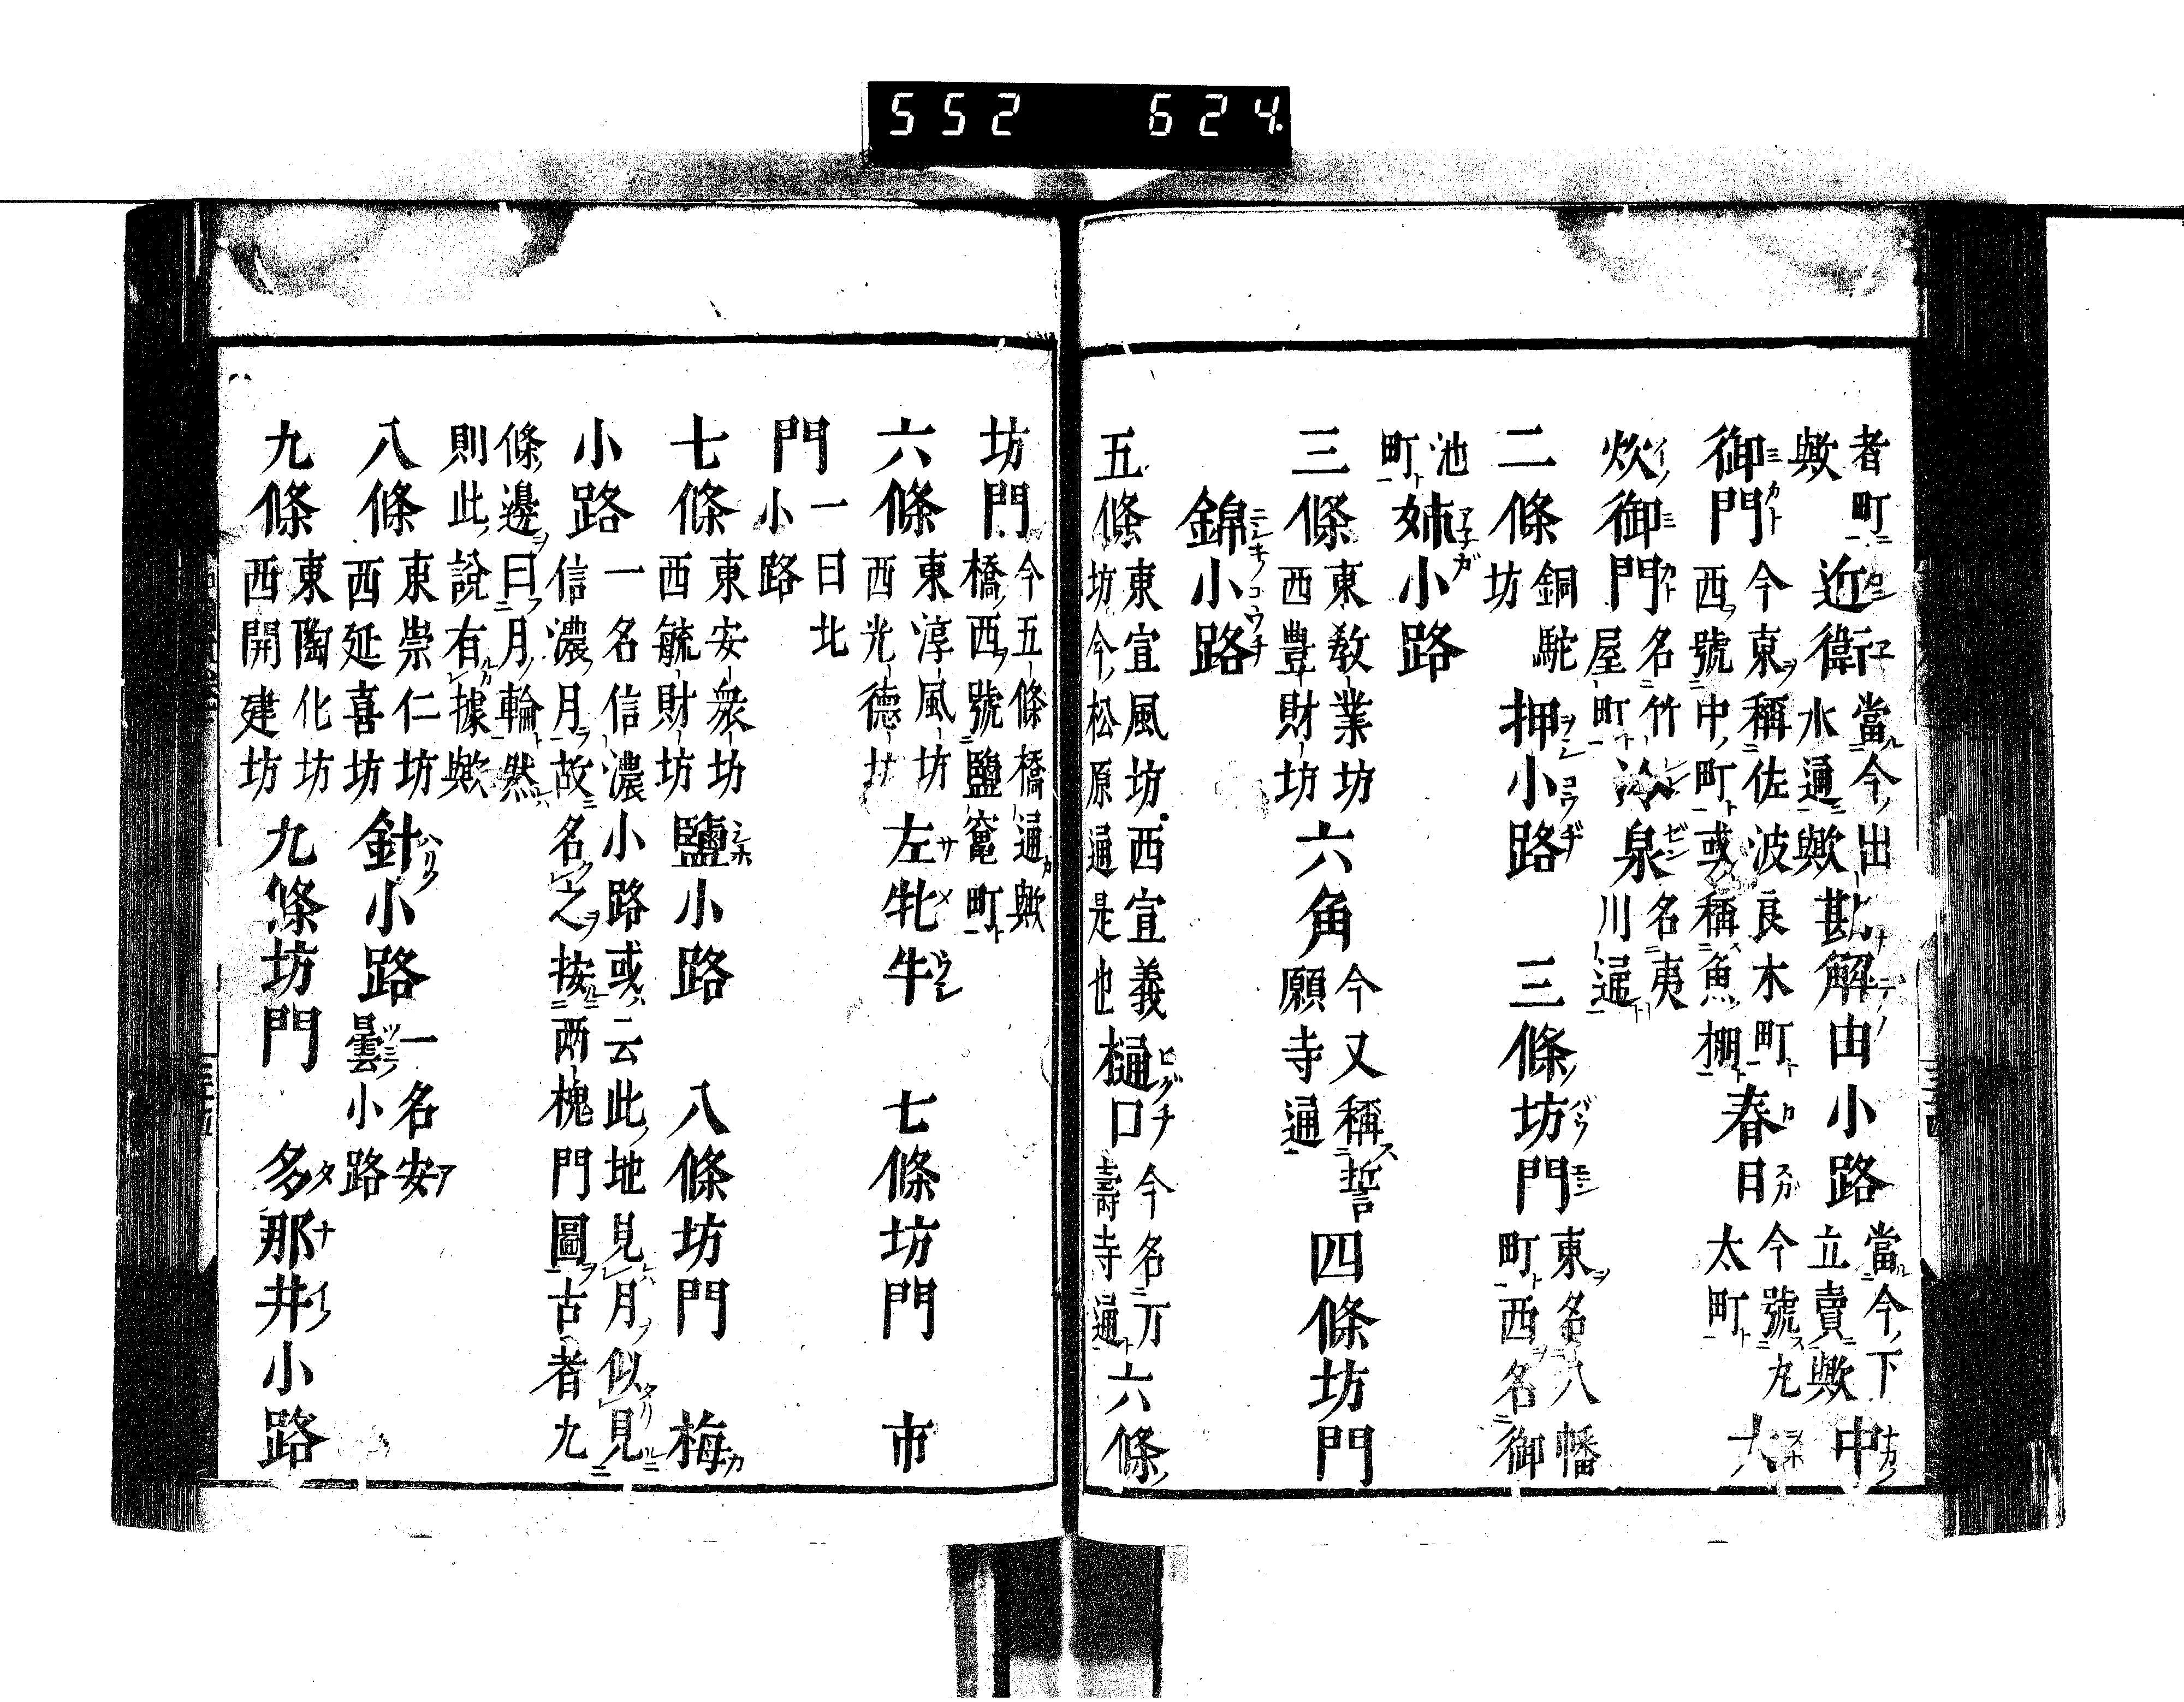 552 624.
者町
歟 近衛 當今出
水通歟 勘解由小路 當今下
立賣歟 中
御門 今東稱佐波良木町
西號中町或稱魚棚 春日 今號丸
太町 大
炊御門 名竹
屋町 冷泉 名夷
川通
二條 銅駝
坊 押小路 三條坊門 東名八幡
町西名御
池
町 姉小路
三條 東教業坊
西豊財坊 六角 今又稱誓
願寺通 四條坊門
錦小路
五條 東宣風坊西宣義
坊今松原通是也 樋口 今名万
壽寺通 六條
坊門 今五條橋通歟
橋西號鹽竈町
六條 東淳風坊
西光德坊 左牝牛 七條坊門 市
門 一曰北
小路
七條 東安衆坊
西毓財坊 鹽小路 八條坊門 梅
小路 一名信濃小路或云此地見月似見
信濃月故名之按兩槐門圖古者九
條邊曰月輪然
則此說有據歟
八條 東崇仁坊
西延喜坊 針小路 一名安
曇小路
九條 東陶化坊
西開建坊 九條坊門 多那井小路